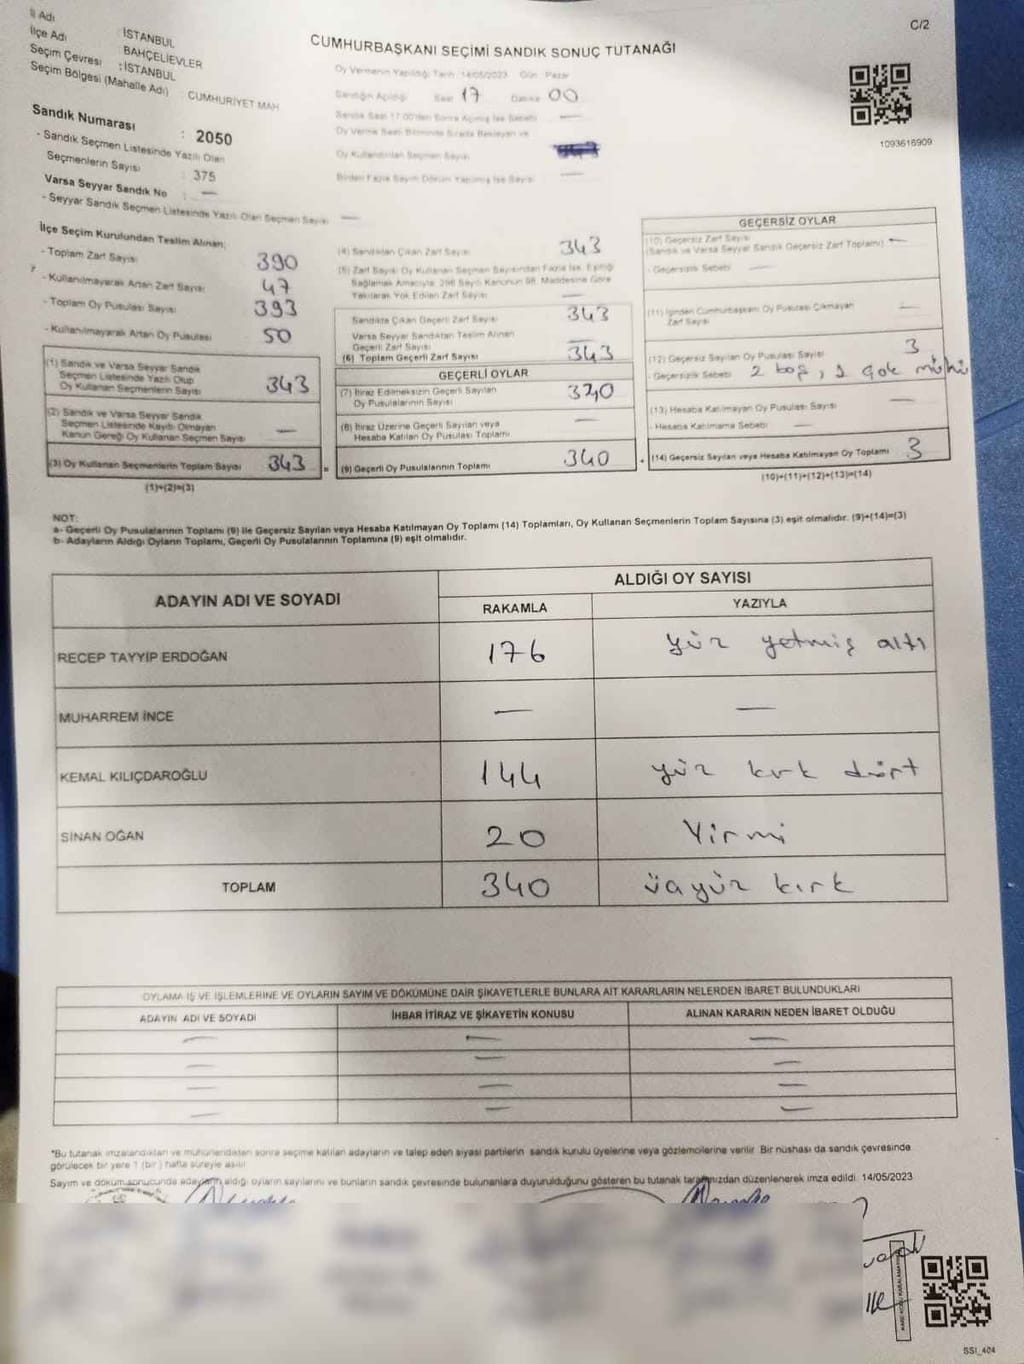 C/2
İl Adı : İSTANBUL
İlçe Adı : BAHÇELİEVLER
Seçim Çevresi : İSTANBUL
Seçim Bölgesi (Mahalle Adı) : CUMHURİYET MAH
CUMHURBAŞKANI SEÇİMİ SANDIK SONUÇ TUTANAĞI
Oy Vermenin Yapıldığı Tarih : 14/05/2023 Gün : Pazar
Sandığın Açıldığı Saat 17 Dakika 00
Oy Kullandırılan Seçmen Sayısı
Birden Fazla Sayım Döküm Yapılmış İse Sayısı —
1093616909
Sandık Numarası : 2050
- Sandık Seçmen Listesinde Yazılı Olan
Seçmenlerin Sayısı : 375
Varsa Seyyar Sandık No : —
- Seyyar Sandık Seçmen Listesinde Yazılı Olan Seçmen Sayısı —
İlçe Seçim Kurulundan Teslim Alınan;
- Toplam Zarf Sayısı 390
- Kullanılmayarak Artan Zarf Sayısı 47
- Toplam Oy Pusulası Sayısı 393
- Kullanılmayarak Artan Oy Pusulası 50
(1) Sandık ve Varsa Seyyar Sandık
Seçmen Listesinde Yazılı Olup
Oy Kullanan Seçmenlerin Sayısı 343
(2) Sandık ve Varsa Seyyar Sandık
Seçmen Listesinde Kayıtlı Olmayan
Kanun Gereği Oy Kullanan Seçmen Sayısı —
(3) Oy Kullanan Seçmenlerin Toplam Sayısı 343 =
(1)+(2)=(3)
(4) Sandıktan Çıkan Zarf Sayısı 343
(5) Zarf Sayısı Oy Kullanan Seçmen Sayısından Fazla İse, Eşitliği
Sağlamak Amacıyla 298 Sayılı Kanunun 98. Maddesine Göre
Yakılarak Yok Edilen Zarf Sayısı —
Sandıkta Çıkan Geçerli Zarf Sayısı 343
Varsa Seyyar Sandıktan Teslim Alınan
Geçerli Zarf Sayısı —
(6) Toplam Geçerli Zarf Sayısı 343
GEÇERLİ OYLAR
(7) İtiraz Edilmeksizin Geçerli Sayılan
Oy Pusulalarının Sayısı 340
(8) İtiraz Üzerine Geçerli Sayılan veya
Hesaba Katılan Oy Pusulası Toplamı —
(9) Geçerli Oy Pusulalarının Toplamı 340 +
GEÇERSİZ OYLAR
(10) Geçersiz Zarf Sayısı
(Sandık ve Varsa Seyyar Sandık Geçersiz Zarf Toplamı) —
- Geçersizlik Sebebi —
(11) İçinden Cumhurbaşkanı Oy Pusulası Çıkmayan
Zarf Sayısı —
(12) Geçersiz Sayılan Oy Pusulası Sayısı 3
- Geçersizlik Sebebi 2 boş, 1 çok mühü
(13) Hesaba Katılmayan Oy Pusulası Sayısı —
- Hesaba Katılmama Sebebi —
(14) Geçersiz Sayılan veya Hesaba Katılmayan Oy Toplamı 3
(10)+(11)+(12)+(13)=(14)
NOT:
a- Geçerli Oy Pusulalarının Toplamı (9) ile Geçersiz Sayılan veya Hesaba Katılmayan Oy Toplamı (14) Toplamları, Oy Kullanan Seçmenlerin Toplam Sayısına (3) eşit olmalıdır. (9)+(14)=(3)
b- Adayların Aldığı Oyların Toplamı, Geçerli Oy Pusulalarının Toplamına (9) eşit olmalıdır.
ADAYIN ADI VE SOYADI
ALDIĞI OY SAYISI
RAKAMLA YAZIYLA
RECEP TAYYİP ERDOĞAN 176 yüz yetmiş altı
MUHARREM İNCE — —
KEMAL KILIÇDAROĞLU 144 yüz kırk dört
SİNAN OĞAN 20 Yirmi
TOPLAM 340 üçyüz kırk
OYLAMA İŞ VE İŞLEMLERİNE VE OYLARIN SAYIM VE DÖKÜMÜNE DAİR ŞİKAYETLERLE BUNLARA AİT KARARLARIN NELERDEN İBARET BULUNDUKLARI
ADAYIN ADI VE SOYADI İHBAR İTİRAZ VE ŞİKAYETİN KONUSU ALINAN KARARIN NEDEN İBARET OLDUĞU
— — —
— — —
— — —
— — —
*Bu tutanak imzalandıktan ve mühürlendikten sonra seçime katılan adayların ve talep eden siyasi partilerin sandık kurulu üyelerine veya gözlemcilerine verilir. Bir nüshası da sandık çevresinde
görülecek bir yere 1 (bir) hafta süreyle asılır.
Sayım ve döküm sonucunda adayların aldığı oyların sayılarını ve bunların sandık çevresinde bulunanlara duyurulduğunu gösteren bu tutanak tarafımızdan düzenlenerek imza edildi. 14/05/2023
SSI_404